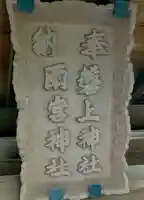 奉磐上神社
納雨宮神社